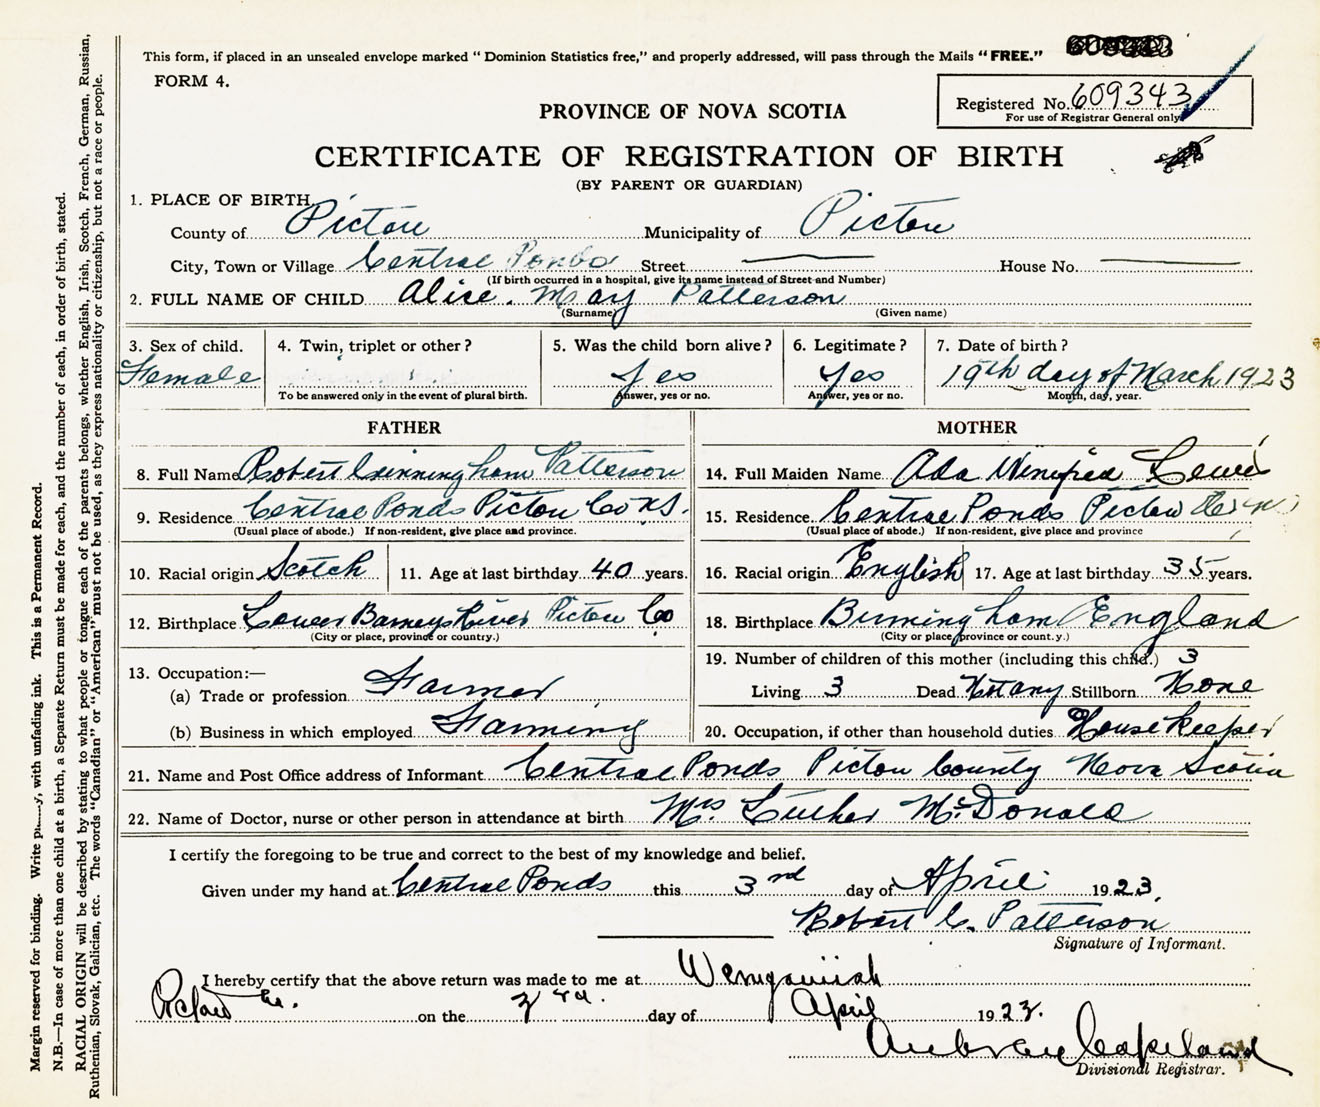 This form, if placed in an unsealed envelope marked "Dominion Statistics free," and properly addressed, will pass through the Mails "FREE."
FORM 4.
Registered No. 609343
For use of Registrar General only
PROVINCE OF NOVA SCOTIA
CERTIFICATE OF REGISTRATION OF BIRTH
(BY PARENT OR GUARDIAN)
1. PLACE OF BIRTH
County of Pictou Municipality of Pictou
City, Town or Village Central Ponds Street House No.
(If birth occurred in a hospital, give its name instead of Street and Number)
2. FULL NAME OF CHILD Alice. Mary Patterson
(Surname) (Given name)
3. Sex of child. 4. Twin, triplet or other? 5. Was the child born alive? 6. Legitimate? 7. Date of birth?
Female Yes Yes 19th day of March 1923
To be answered only in the event of plural birth. Answer, yes or no. Answer, yes or no. Month, day, year.
FATHER MOTHER
8. Full Name Robert Cunningham Patterson 14. Full Maiden Name Ada Winifred
9. Residence Central Ponds Pictou Co N.S. 15. Residence Central Ponds Pictou
(Usual place of abode.) If non-resident, give place and province. (Usual place of abode.) If non-resident, give place and province
10. Racial origin Scotch 11. Age at last birthday 40 years. 16. Racial origin English 17. Age at last birthday 35 years.
12. Birthplace Lower Barneys River Pictou Co 18. Birthplace Birmingham England
(City or place, province or country.) (City or place province or count.y.)
13. Occupation:— 19. Number of children of this mother (including this child.) 3
(a) Trade or profession Farmer Living 3 Dead Not any Stillborn None
(b) Business in which employed Farming 20. Occupation, if other than household duties House Keeper
21. Name and Post Office address of Informant Central Ponds Pictou County Nova Scotia
22. Name of Doctor, nurse or other person in attendance at birth Mrs Luther McDonald
I certify the foregoing to be true and correct to the best of my knowledge and belief.
Given under my hand at Central Ponds this 3rd day of April 1923
Robert C. Patterson
Signature of Informant.
I hereby certify that the above return was made to me at
Pictou Co. on the 3rd. day of April 1923.
Copeland
Divisional Registrar.
Margin reserved for binding. Write with unfading ink. This is a Permanent Record.
N.B.—In case of more than one child at a birth, a Separate Return must be made for each, and the number of each, in order of birth, stated.
RACIAL ORIGIN will be described by stating to what people or tongue each of the parents belongs, whether English, Irish, Scotch, French, German, Russian,
Ruthenian, Slovak, Galician, etc. The words "Canadian" or "American" must not be used, as they express nationality or citizenship, but not a race or people.